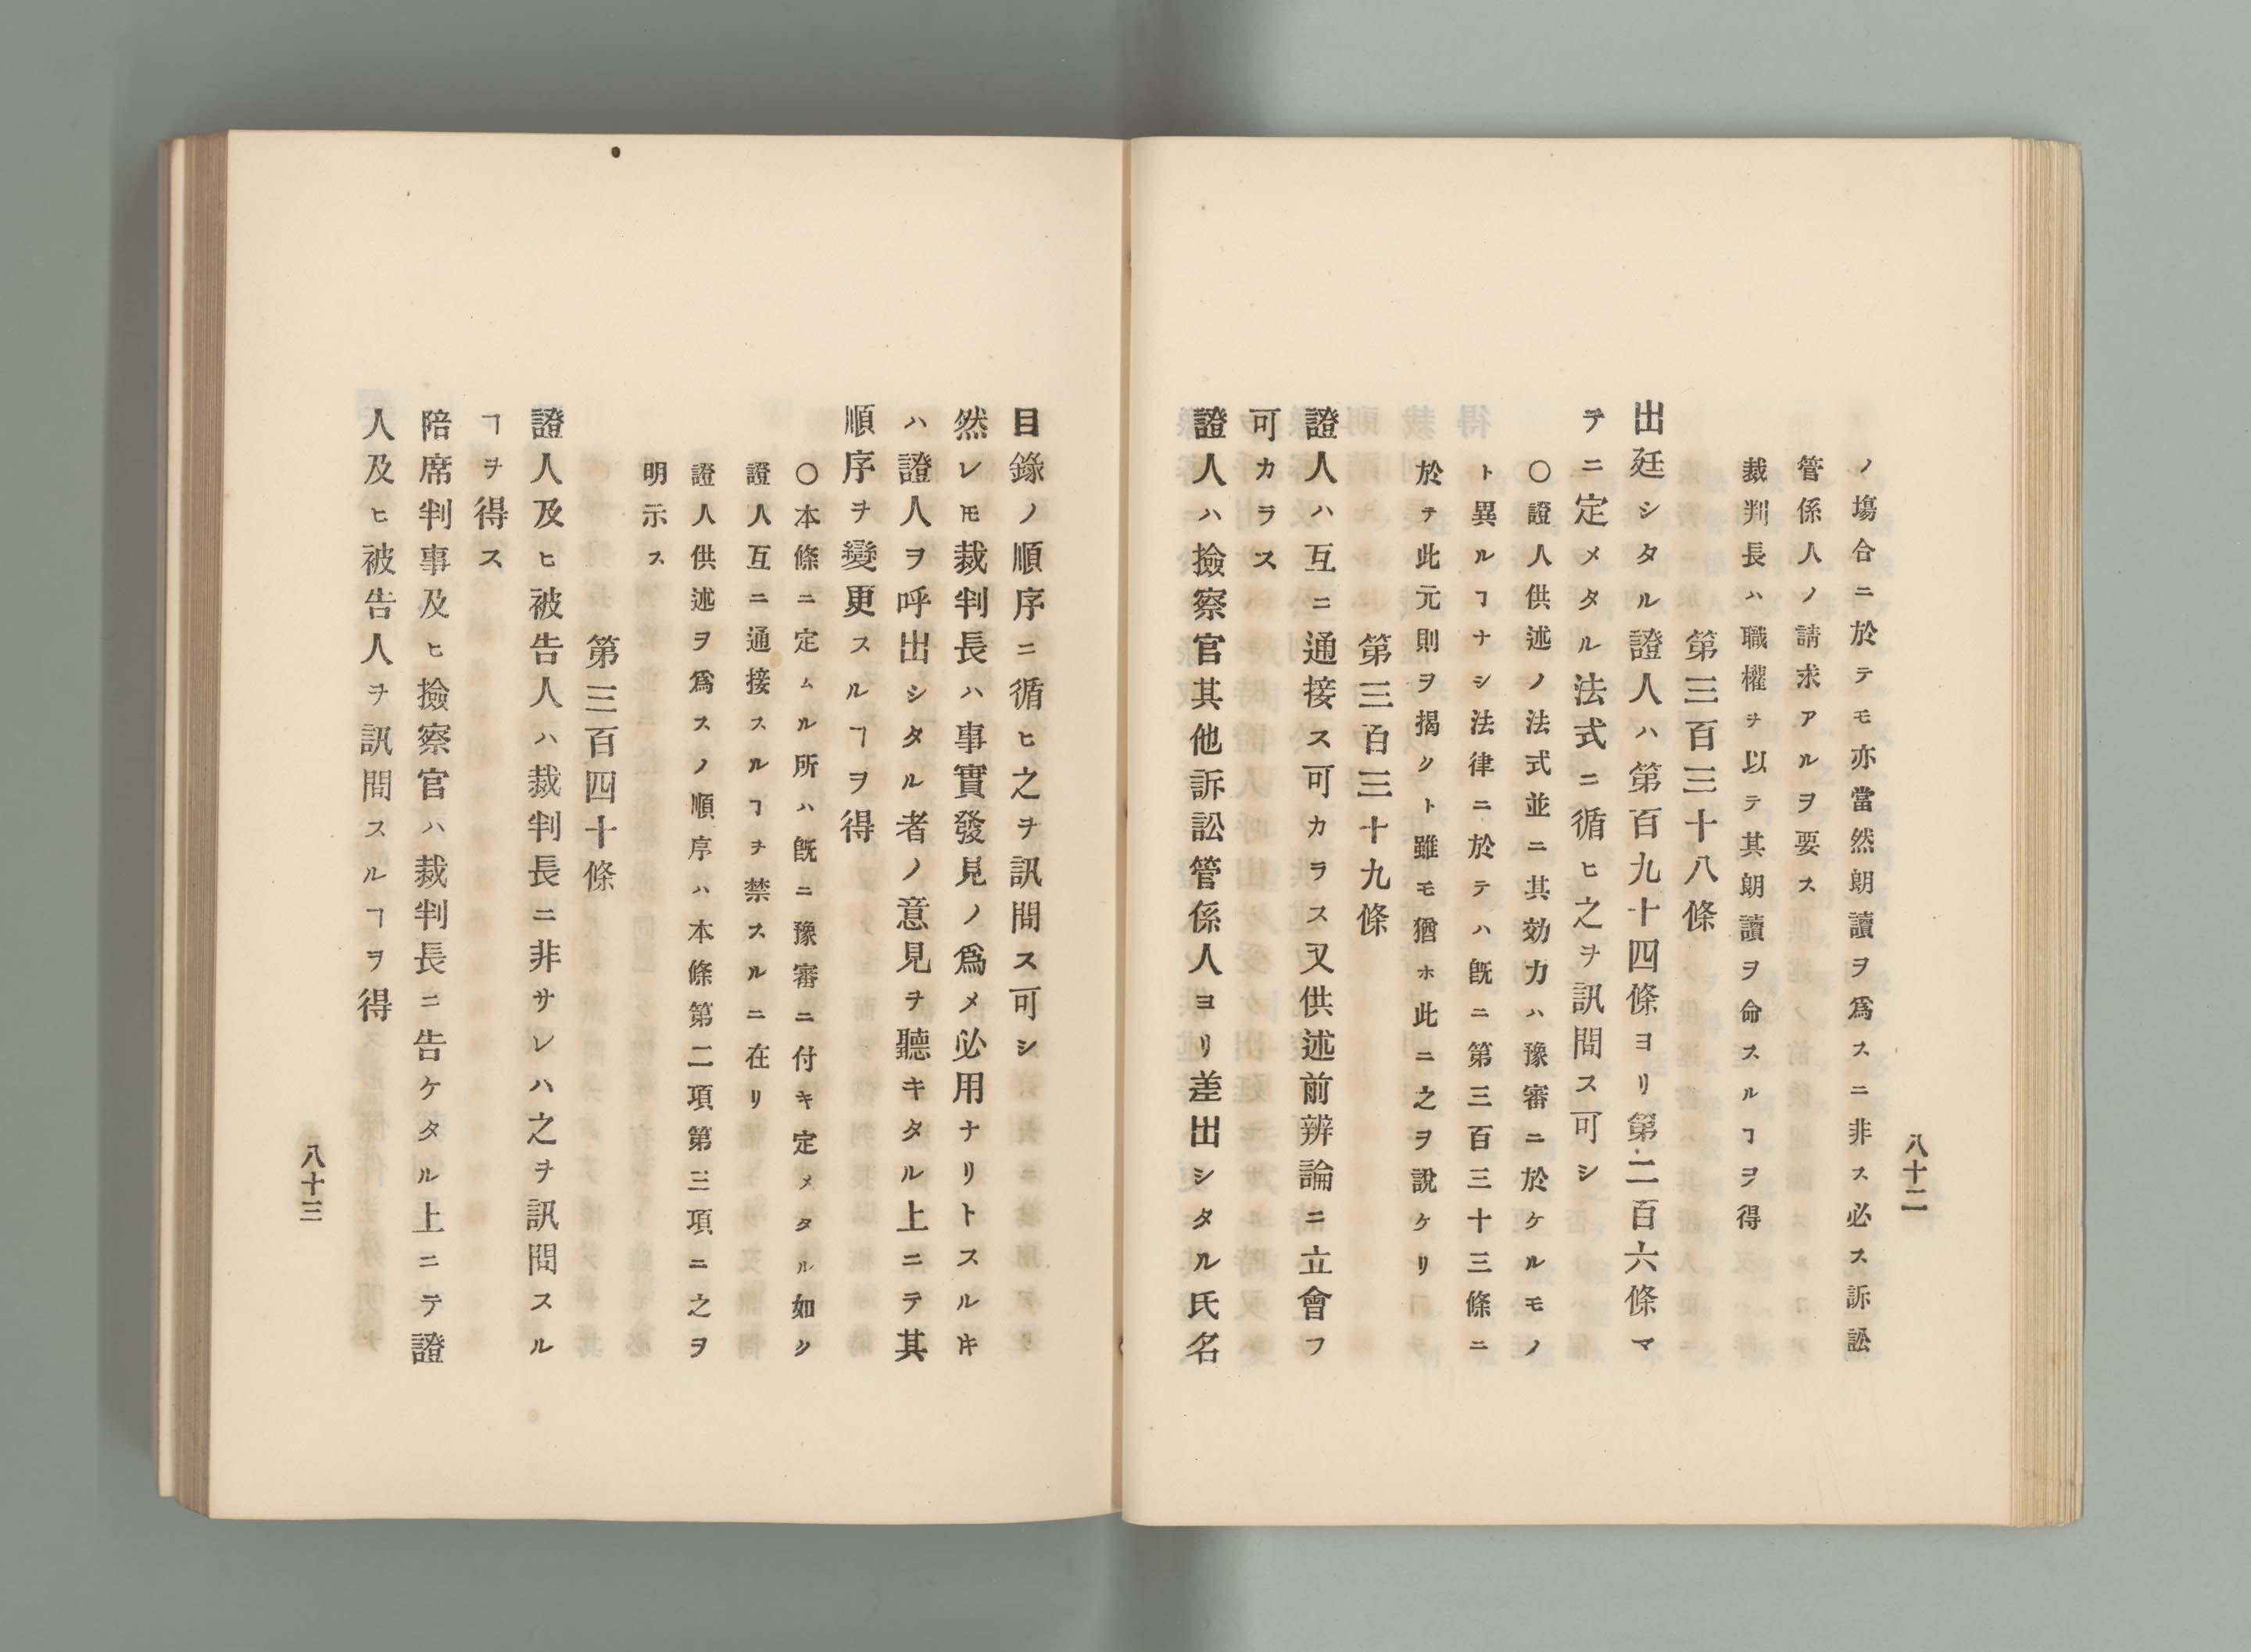 八十二
ノ塲合ニ於テモ亦當然朗讀ヲ爲スニ非ス必ス訴訟
管係人ノ請求アルヲ要ス
裁判長ハ職權ヲ以テ其朗讀ヲ命スルヿヲ得
第三百三十八條
出廷シタル證人ハ第百九十四條ヨリ第二百六條マ
テニ定メタル法式ニ循ヒ之ヲ訊問ス可シ
○證人供述ノ法式並ニ其効力ハ豫審ニ於ケルモノ
ト異ルヿナシ法律ニ於テハ既ニ第三百三十三條ニ
於テ此元則ヲ揭クト雖モ猶ホ此ニ之ヲ說ケリ
第三百三十九條
證人ハ互ニ通接ス可カラス又供述前辨論ニ立會フ
可カラス
證人ハ撿察官其他訴訟管係人ヨリ差出シタル氏名
目錄ノ順序ニ循ヒ之ヲ訊問ス可シ
然レ𪜈裁判長ハ事實發見ノ爲メ必用ナリトスルキ
ハ證人ヲ呼出シタル者ノ意見ヲ聽キタル上ニテ其
順序ヲ變更スルヿヲ得
○本條ニ定ムル所ハ既ニ豫審ニ付キ定メタル如ク
證人互ニ通接スルヿヲ禁スルニ在リ
證人供述ヲ爲スノ順序ハ本條第二項第三項ニ之ヲ
明示ス
第三百四十條
證人及ヒ被告人ハ裁判長ニ非サレハ之ヲ訊問スル
ヿヲ得ス
陪席判事及ヒ撿察官ハ裁判長ニ告ケタル上ニテ證
人及ヒ被告人ヲ訊問スルヿヲ得
八十三